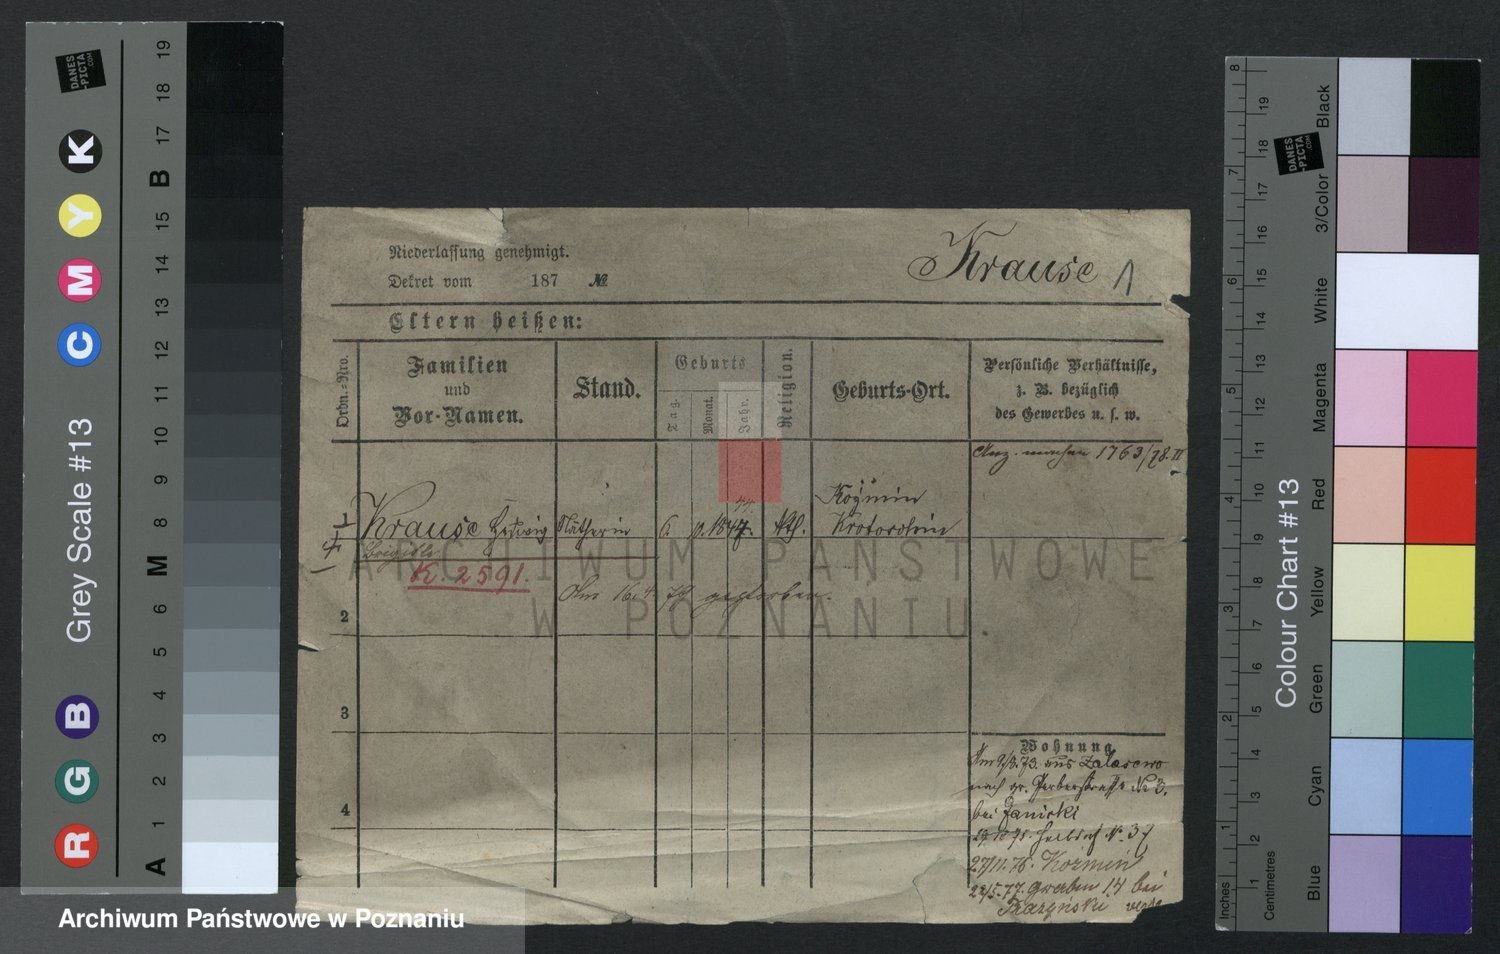 Niederlassung genehmigt.
Dekret vom 187 №
Krause 1
Eltern heißen:
Ordn.=Nro.
Familien
und
Vor-Namen.
Stand.
Geburts
Tag.
Monat.
Jahr.
Religion.
Geburts-Ort.
Persönliche Verhältnisse,
z. B. bezüglich
des Gewerbes u. s. w.
1763/78 II
44.
1 Krause Hedwig Näherin 6. 1847. kth. Kozmin
Krotoschin
K. 2591.
Am 16.4.79 gestorben.
2
3
4
Wohnung
aus Zalasewo
nach gr. Gerberstraße No 3.
bei Janicki
No 37
27/11.76. Kozmin
22/5.77. Graben 14 bei
ARCHIWUM PAŃSTWOWE
W POZNANIU.
Archiwum Państwowe w Poznaniu
Grey Scale #13
DANES
-PICTA
.COM
R G B C M Y K
A 1 2 3 4 5 6 M 8 9 10 11 12 13 14 15 B 17 18 19
Colour Chart #13
DANES
-PICTA
.COM
Inches
1 2 3 4 5 6 7 8
Centimetres
1 2 3 4 5 6 7 8 9 10 11 12 13 14 15 16 17 18 19
Blue
Cyan
Green
Yellow
Red
Magenta
White
3/Color
Black